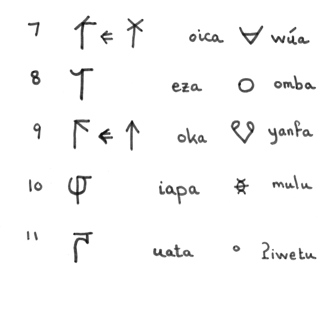 7 oica wúa
8 eza omba
9 oka yanfa
10 iapa mulu
11 uata ʔiwetu